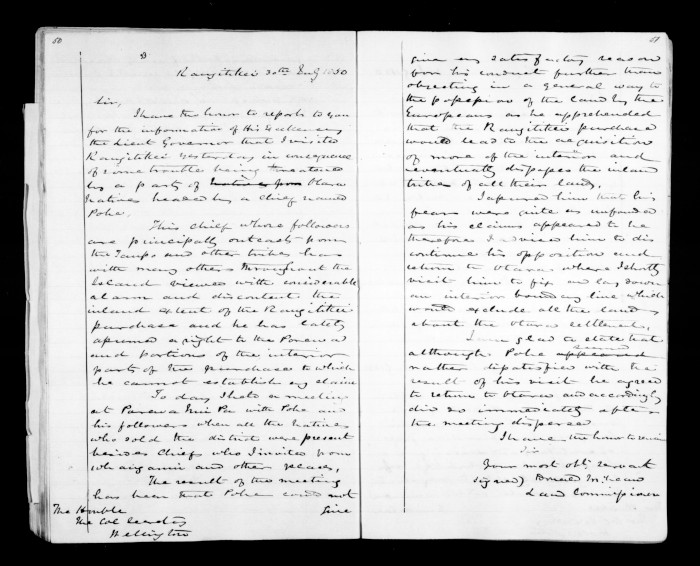 50
Rangitikei 30th July 1850
Sir,
I have the honor to report to you
for the information of His Excellency
the Lieut Governor that I visited
Rangitikei yesterday in consequence
of some trouble being threatened
by a party of Natives from Otara
natives headed by a chief named
Pohe.
This chief whose followers
are principally outcasts from
the Taupo and other tribes has
with many others throughout the
Island viewed with considerable
alarm and discontent the
inland extent of the Rangitikei
purchase and he has lately
assumed a right to the Parewa
and portions of the interior
parts of the purchase to which
he cannot establish any claim
To day I held a meeting
at Parewa Nui Pa with Pohe and
his followers when all the Natives
who sold the district were present
besides Chiefs who I invited from
Whanganui and other places,
The result of the meeting
has been that Pohe could not
give
The Honble
The Col Secretary
Wellington
51
give any satisfactory reason
for his conduct further than
objecting in a general way to
the possession of the land by the
Europeans as he apprehended
that the Rangitikei purchase
would lead to the acquisition
of more of the interior and
eventually dispossess the inland
tribes of all their land.
I assured him that his
fears were quite as unfounded
as his claims appeared to be
therefore I advised him to dis
continue his opposition and
return to Otara where I shortly
visit him to fix and lay down
an interior boundary line which
would exclude all the land
about the Otara settlement.
I am glad to state that
although Pohe appeared seemed
rather dissatisfied with the
result of his visit he agreed
to return to Otara and accordingly
did so immediately after
the meeting dispersed
I have the honor to remain
Sir
Your most obt servant
signed) Donald McLean
Land Commissioner